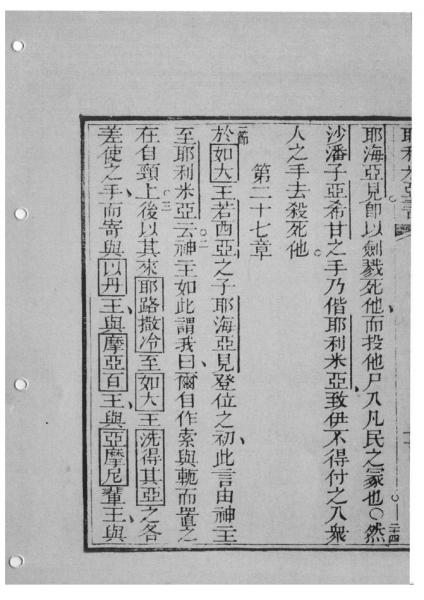 耶利米亞書
耶海亞見卽以劍戮死他、而投他尸入凡民之冢也○然
沙潘子亞希甘之手乃偕耶利米亞、致伊不得付之入衆
人之手去殺死他。
第二十七章
一節於如大王若西亞之子耶海亞見登位之初、此言由神主
至耶利米亞云。二神主如此謂我曰、爾自作索與軛而置之
在自頸上。三後以其來耶路撒冷至如大王洗得其亞之各
差使之手、而寄與以丹王、與摩亞百王、與亞摩尼輩王、與